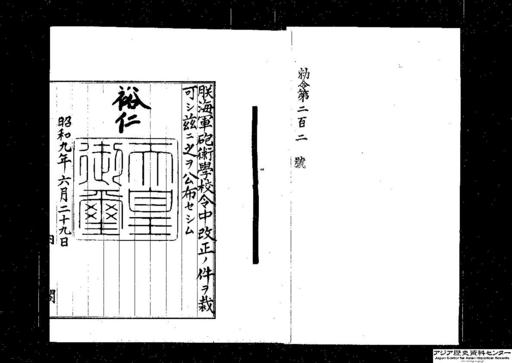 勅令第二百二號
朕海軍砲術學校令中改正ノ件ヲ裁
可シ茲ニ之ヲ公布セシム
裕仁
天皇
御璽
昭和九年六月二十九日
アジア歴史資料センター
Japan Center for Asian Historical Records